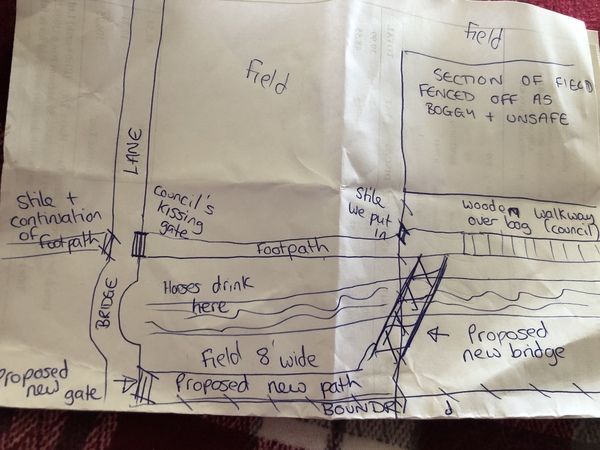 Field
Field
SECTION OF FIELD
FENCED OFF AS
BOGGY + UNSAFE
LANE
Stile +
continuation
of Footpath
Council's
kissing
gate
Stile
we put
in
wooden walkway
over bog (council)
Footpath
BRIDGE
Horses drink
here
Field 8' wide
Proposed
new bridge
Proposed
new gate
Proposed new path
BOUNDRY